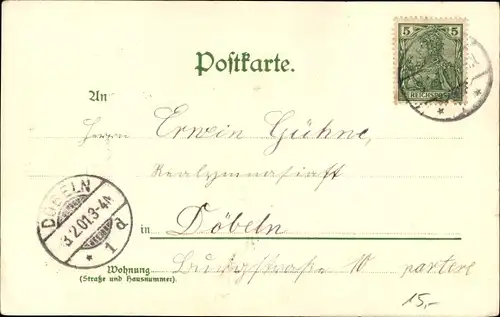 5 5
REICHSPOST
Postkarte.
An
Herrn Erwin Gühne,
Realgymnasiast
in Döbeln
Wohnung Burgstraße 10 partere
(Straße und Hausnummer).
15,-
DÖBELN
3.2.01.3-4N
* 1 d